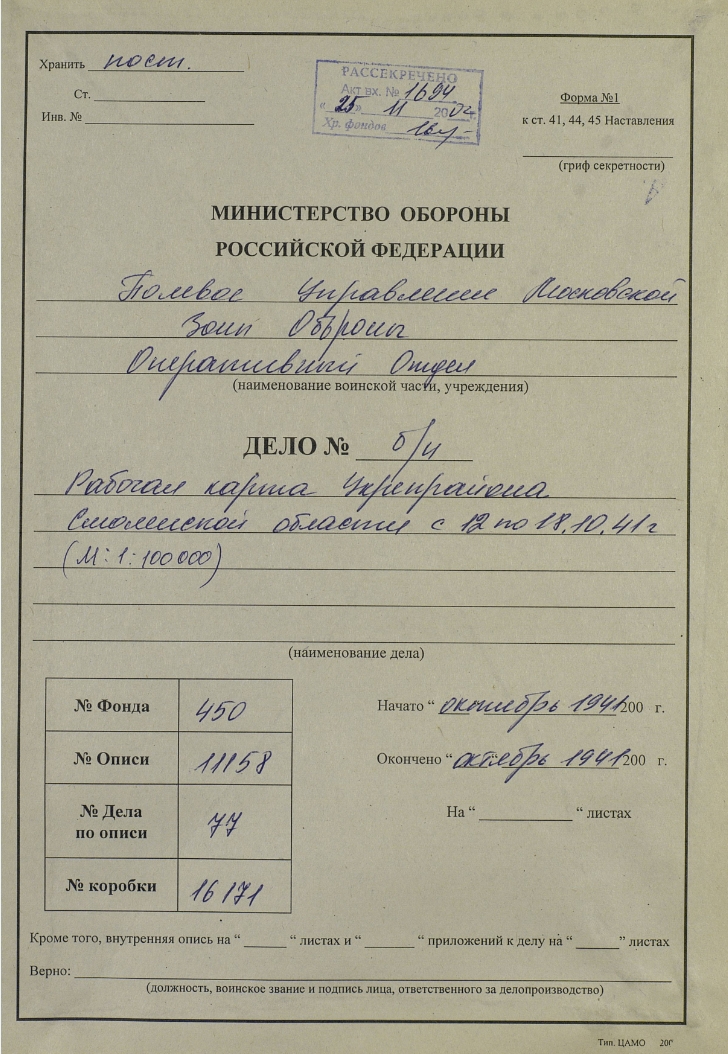 Хранить пост.
Ст.
Инв. №
РАССЕКРЕЧЕНО
Акт вх. № 1694
« 25 » 11 200 г.
Хр. фондов
Форма №1
к ст. 41, 44, 45 Наставления
(гриф секретности)
МИНИСТЕРСТВО ОБОРОНЫ
РОССИЙСКОЙ ФЕДЕРАЦИИ
Полевое Управление Московской
Зоны Обороны
Оперативный Отдел
(наименование воинской части, учреждения)
ДЕЛО № б/н
Рабочая карта Укрепрайона
Смоленской области с 12 по 18.10.41 г
(М: 1:100000)
(наименование дела)
№ Фонда 450
№ Описи 11158
№ Дела
по описи 77
№ коробки 16171
Начато “ октябрь 1941 200 г.
Окончено “ октябрь 1941 200 г.
На “ “ листах
Кроме того, внутренняя опись на “ “ листах и “ “ приложений к делу на “ ” листах
Верно:
(должность, воинское звание и подпись лица, ответственного за делопроизводство)
Тип. ЦАМО 200